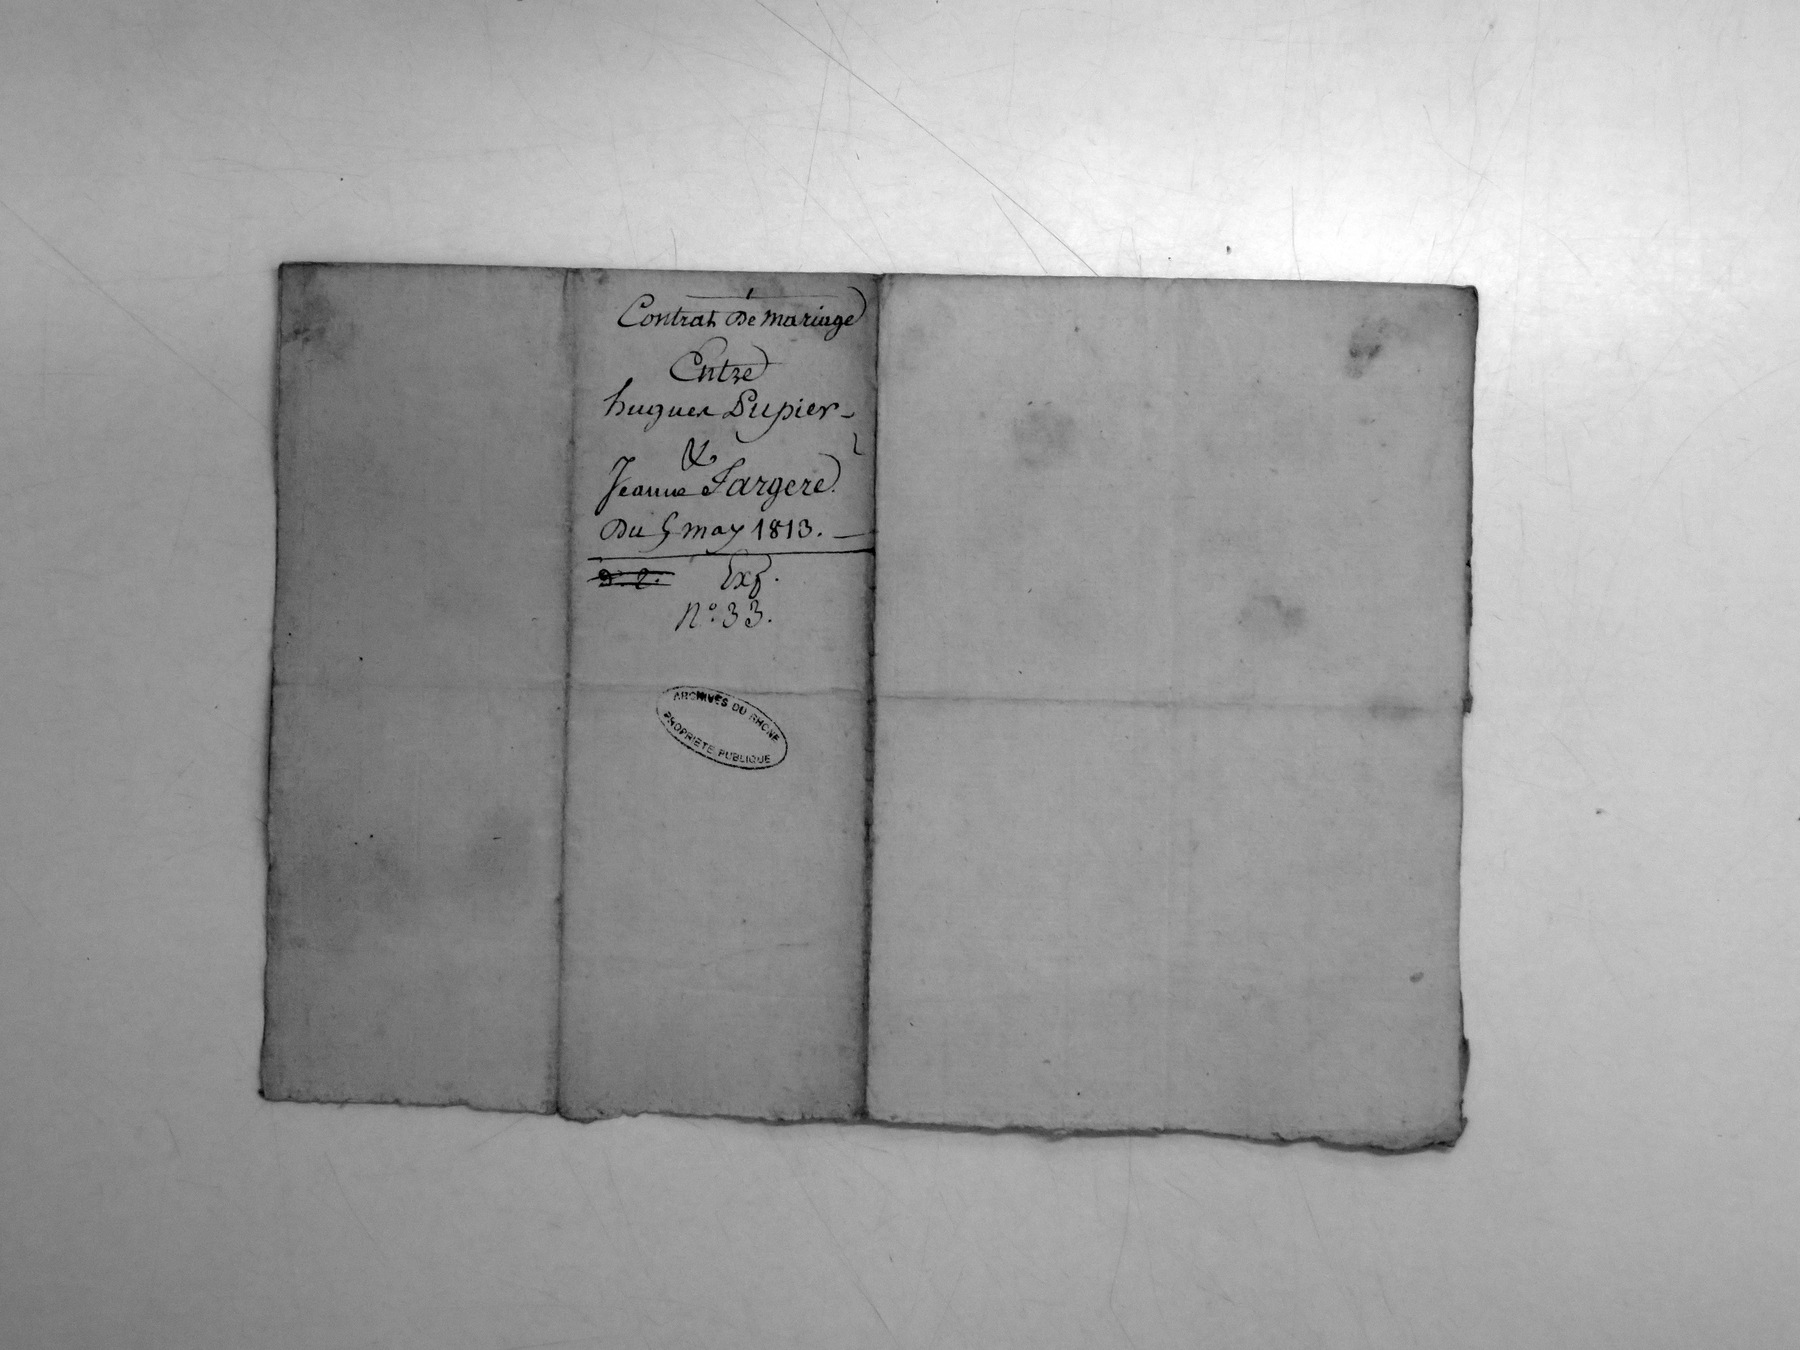 Contrat De mariage
Entre
hugues Dupier
&
Jeanne Fargere
Du 5 may 1813.
Exp.
n.° 33.
ARCHIVES DU RHONE
PROPRIETE PUBLIQUE